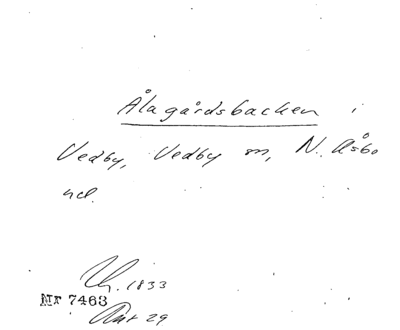 Ålagårdsbacken i
Vedby, Vedby sn, N. Åsbo
hd.
1833
Nr 7463
Akt 29